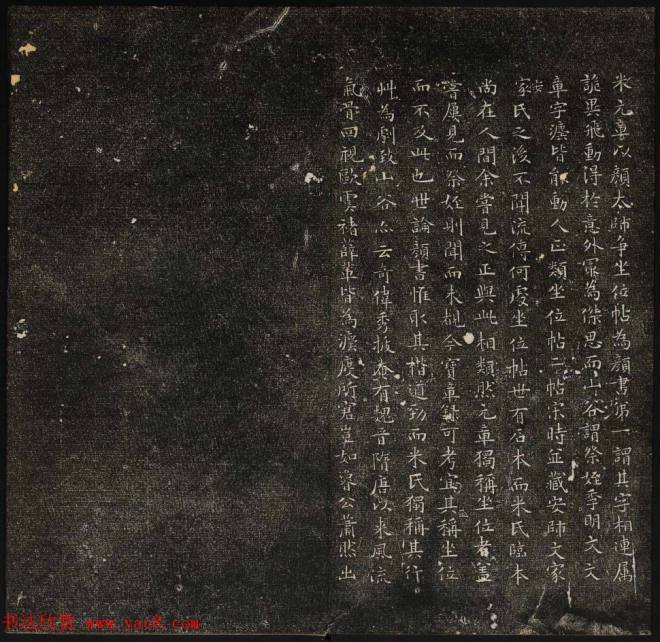 米元章以顏太師争坐位帖為顏書第一謂其字相連属
詭異飛動得於意外最為傑思而山谷謂祭姪季明文文
章字瀍皆能動人正類坐位帖二帖宋時並藏安師文家
安氏之後不聞流傳何處坐位帖世有石本而米氏臨本
尚在人間余嘗見之正與此相類然元章獨稱坐位者盖
嘗屢見而祭姪則聞而未覩今寶章録可考寔其稱坐位
而不及此也世論顏書惟取其楷遒勁而米氏獨稱其行
艸為劇致山谷亦云奇偉秀拔奄有魏晉隋唐以来風流
氣骨回視歐虞褚薛輩皆為瀍度所窘豈如魯公蕭然出
书法欣赏 www.yac8.com